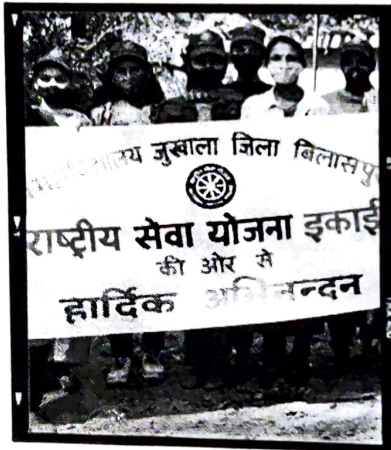 जुखाला जिला बिलासपुर
राष्ट्रीय सेवा योजना इकाई
की ओर से
हार्दिक अभिनन्दन